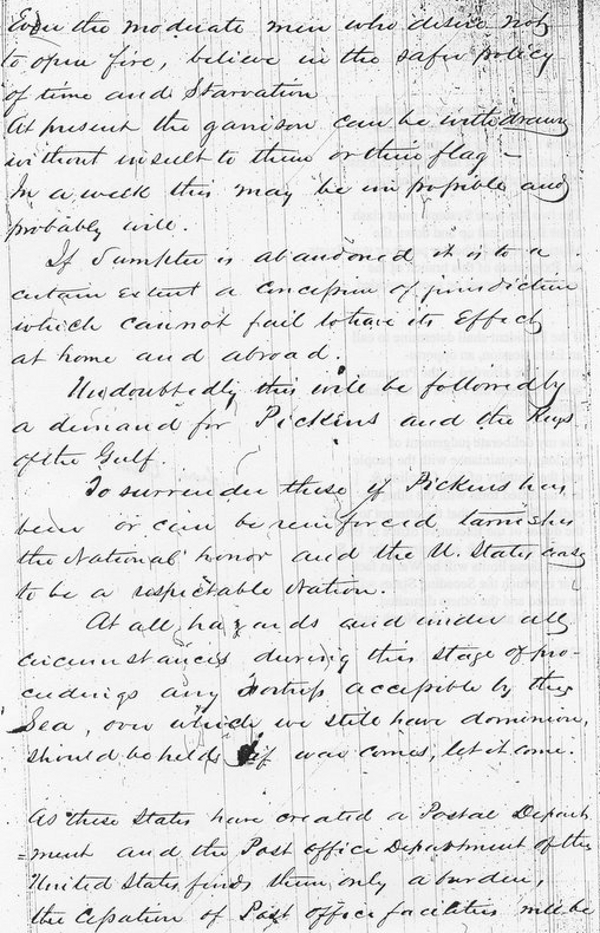 Even the moderate men who desire not
to open fire, believe in the safer policy
of time and Starvation
At present the garrison can be withdrawn
without insult to them or their flag —
In a week this may be impossible and
probably will.
If Sumpter is abandoned it is to a
certain extent a concession of jurisdiction
which cannot fail to have its Effect
at home and abroad.
Undoubtedly this will be followed by
a demand for Pickens and the Keys
of the Gulf.
To surrender these if Pickens has
been or can be reinforced tarnishes
the National honor and the U. States cease
to be a respectable Nation.
At all hazards and under all
circumstances during this stage of pro-
ceedings any Fortress accessible by the
Sea, over which we still have dominion,
should be held if war comes, let it come.
As these States have created a Postal Depart
=ment and the Post office Department of the
United States finds them only a burden,
the cessation of Post office facilities will be